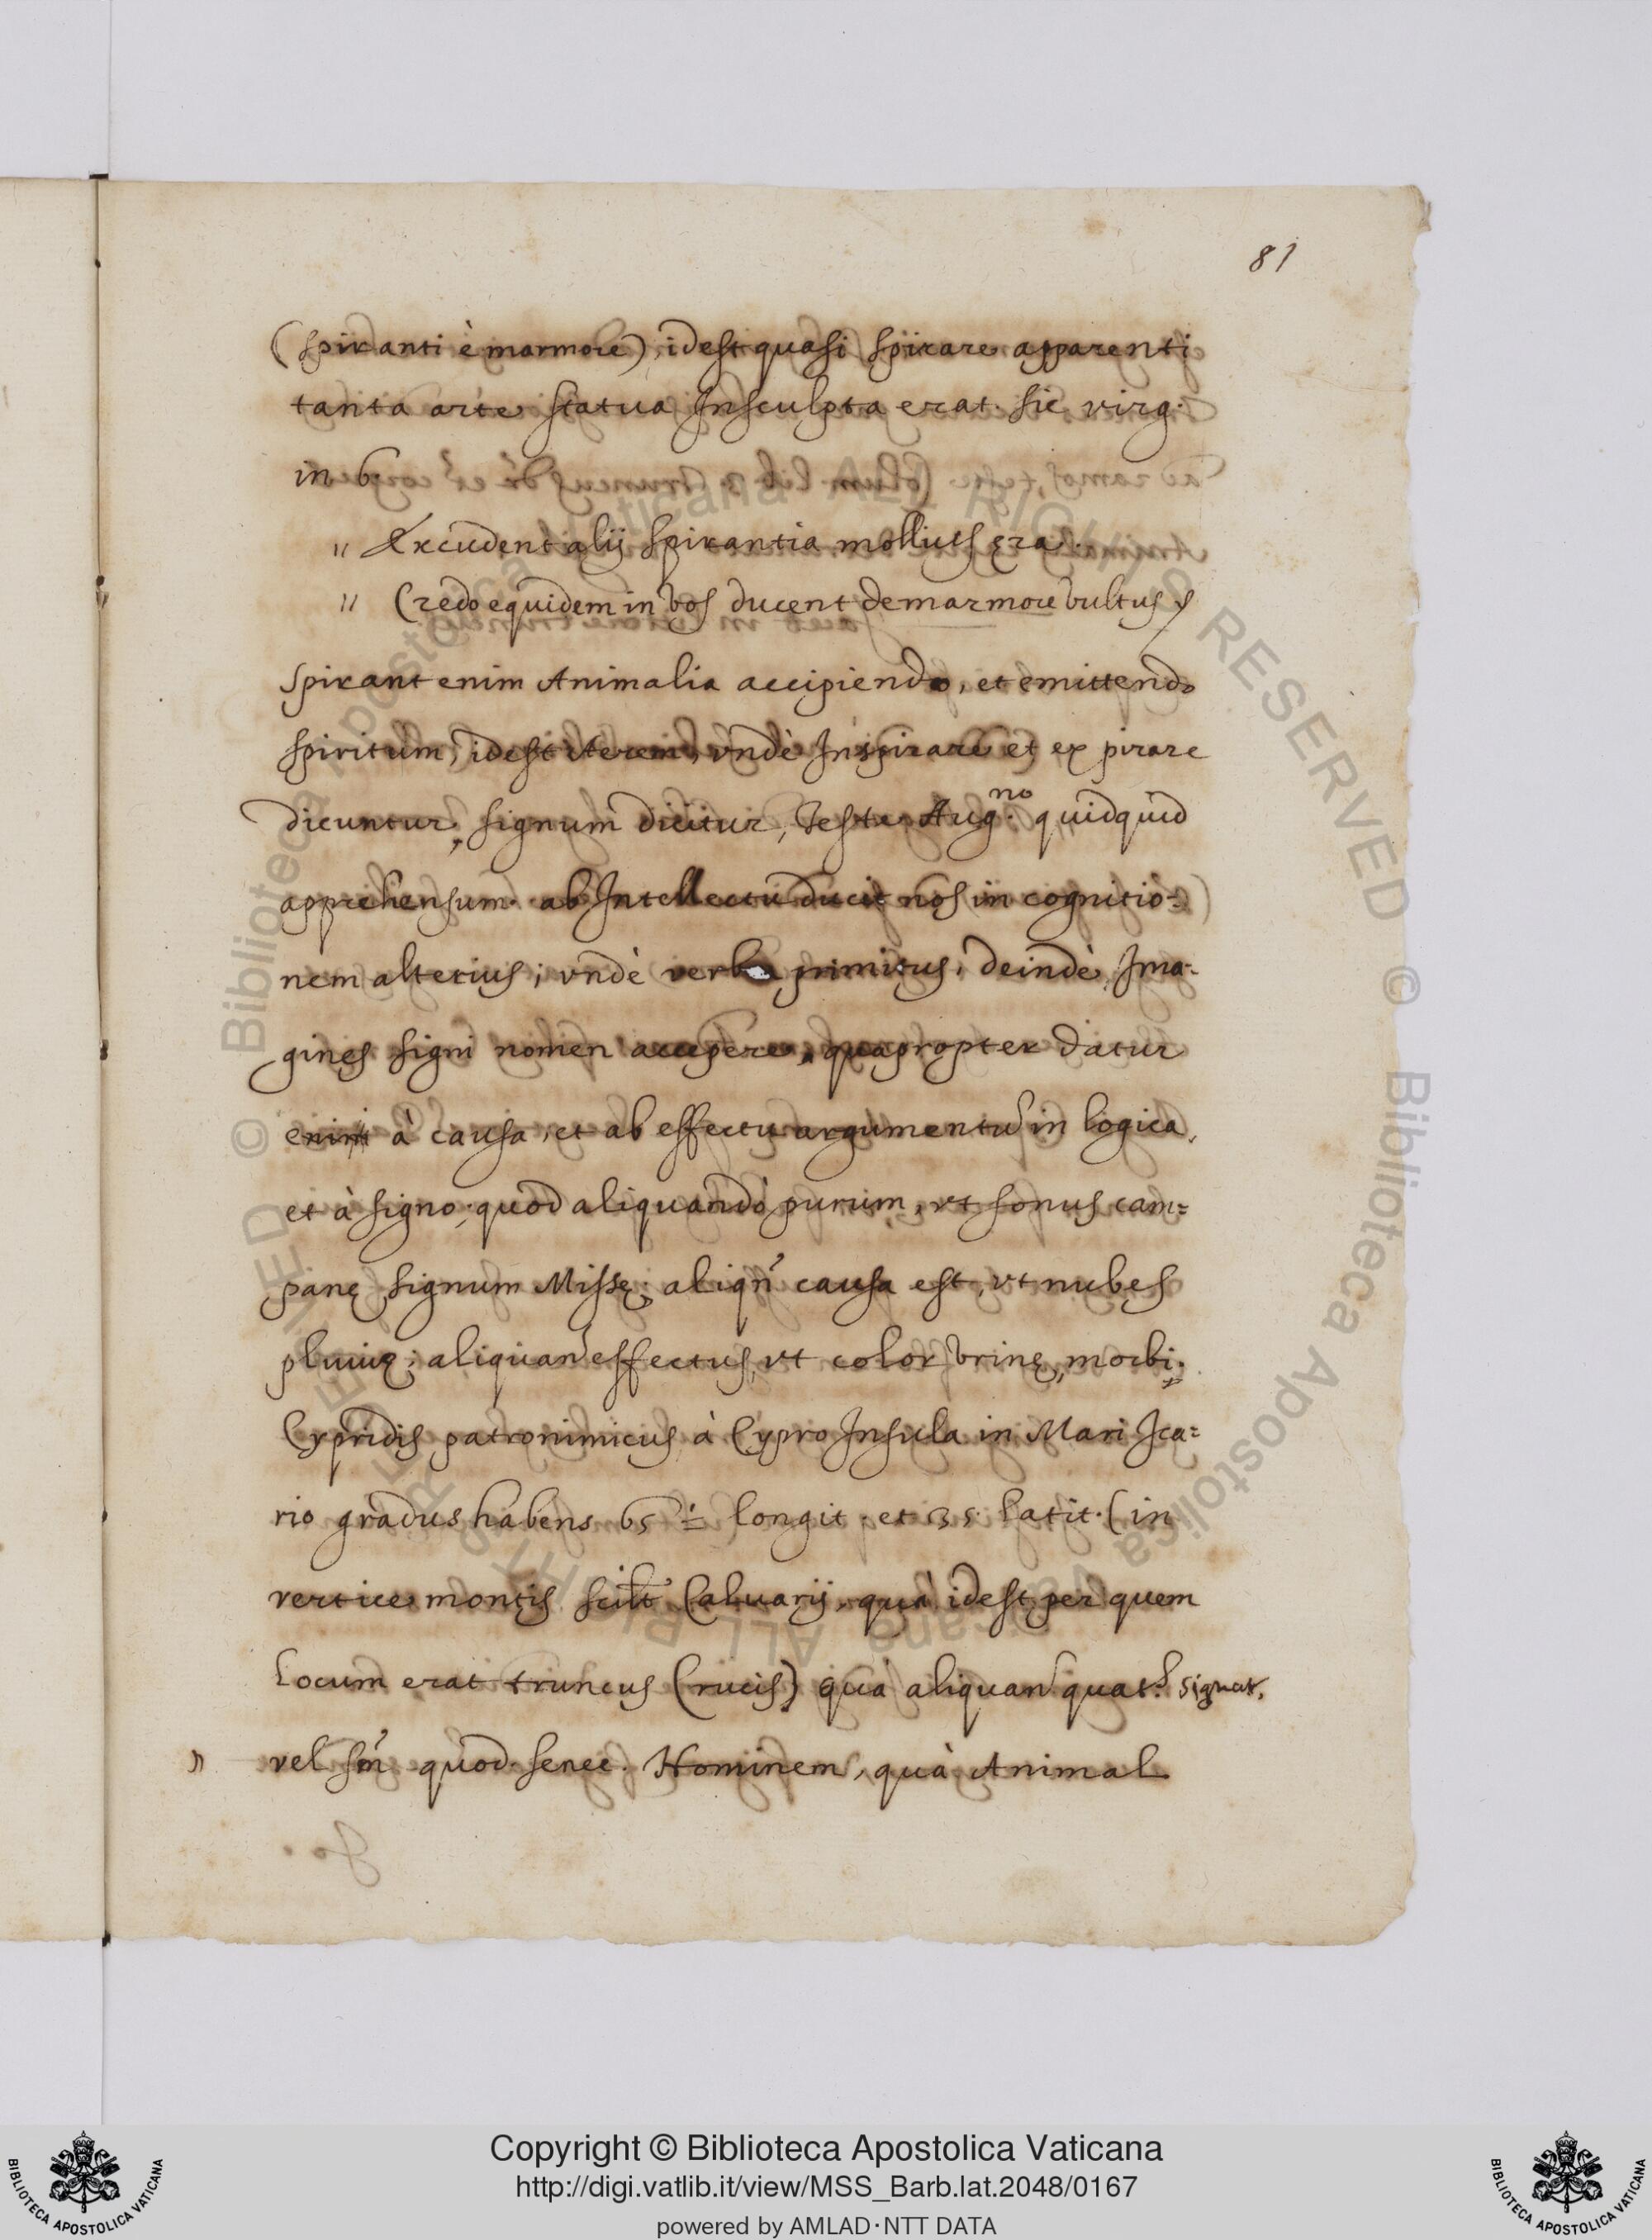 81
(spiranti è marmore), idest quasi spirare apparenti
tanta arte statua Insculpta erat. sic virg.
in 6.
" Excudent alij spirantia mollius ęra.
" Credo equidem in vos ducent de marmore vultus
spirant enim Animalia accipiendo, et emittendo
spiritum, idest Aerem, vndè Inspirare et expirare
dicuntur, signum dicitur, Teste Aug.no quidquid
apprehensum ab Intellectu ducit nos in cognitio=
nem alterius; vndè verba primitus, deindè Ima-
gines signi nomen accepere, quapropter datur
enim à causa, et ab effectu argumentũ in logica,
et à signo; quod aliquandò purum, vt sonus cam=
panę signum Missę; aliqñ causa est, vt nubes
pluuię; aliquan effectus, vt color vrinę, morbi.
Cypridis patronimicus à Cypro Insula in Mari Ica=
rio gradus habens 65 longit. et 35. latit. (in
vertice montis scilt Caluarij, quà idest per quem
Locum erat truncus Crucis) quà aliquan quat. signat,
" vel sm̃ quod. senec. Hominem, quà Animal
Copyright © Biblioteca Apostolica Vaticana
http://digi.vatlib.it/view/MSS_Barb.lat.2048/0167
powered by AMLAD·NTT DATA
BIBLIOTECA APOSTOLICA VATICANA
BIBLIOTECA APOSTOLICA VATICANA